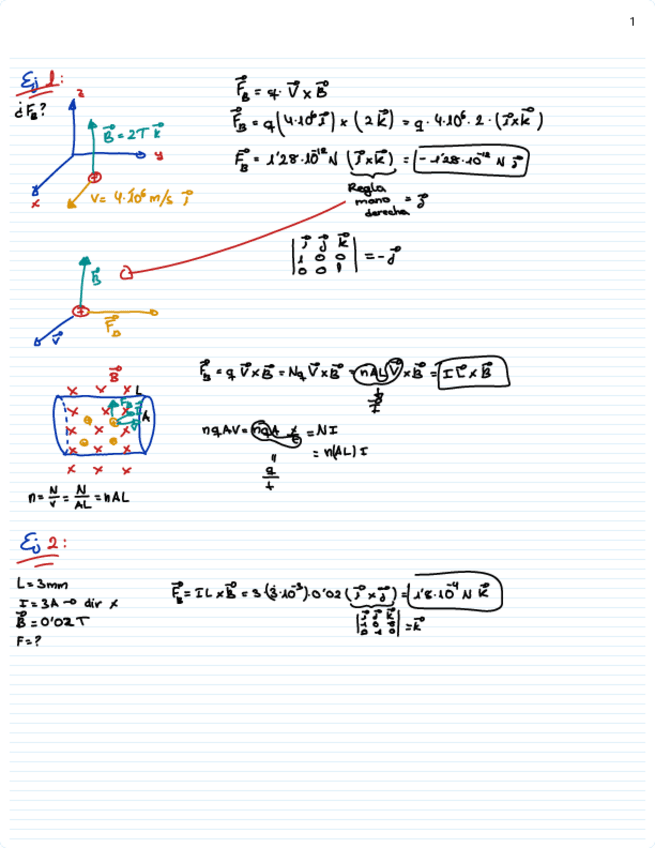 1
Ej 1:
¿F⃗B?
z
B⃗=2T k⃗
y
x
V= 4·10⁶ m/s i⃗
F⃗B = q· V⃗ x B⃗
F⃗B = q(4·10⁶ i⃗) x (2 k⃗) = q· 4·10⁶· 2· (i⃗xk⃗)
F⃗B = 1'28·10⁻¹² N (i⃗xk⃗) = -1'28·10⁻¹² N j⃗
Regla
mano
derecha
= j⃗
i⃗ j⃗ k⃗
1 0 0
0 0 1
= -j⃗
B⃗
F⃗B
V⃗
F⃗B = q V⃗xB⃗ = Nq V⃗xB⃗ = nALV⃗ xB⃗ = I L⃗ x B⃗
B⃗
x x x L
A
nqAV = nqA = NI
= n(AL) I
q
t
n = N/V = N/AL = nAL
Ej 2:
L = 3mm
I = 3A → dir x
B⃗ = 0'02T
F = ?
F⃗B = IL x B⃗ = 3 (3·10⁻³)·0'02 (i⃗ x j⃗) = 1'8·10⁻⁴ N k⃗
i⃗ j⃗ k⃗
1 0 0
0 1 0
= k⃗